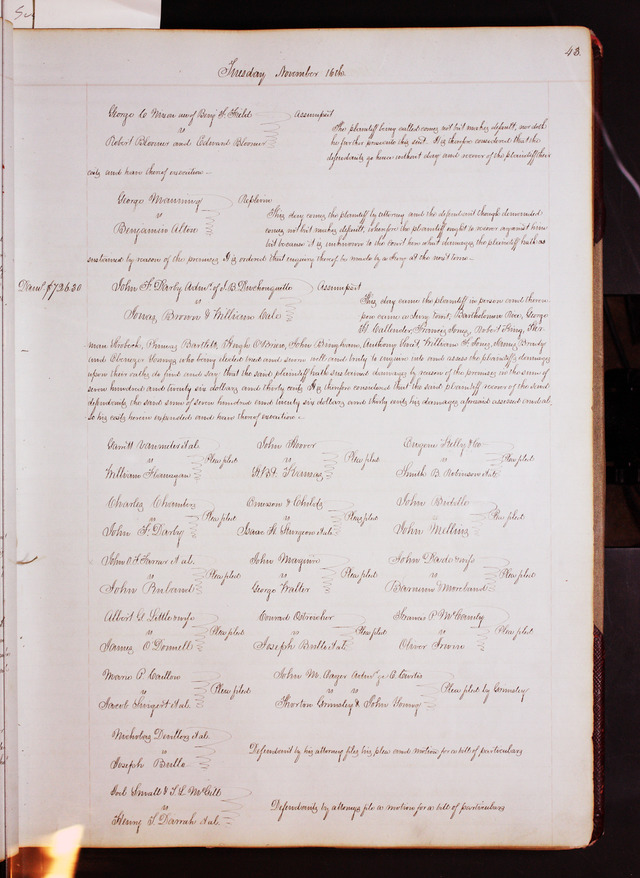 43.
Tuesday November 16th.
George C. Mason use of Benj. F. Field Assumpsit
vs
Robert Bloomer and Edward Bloomer
The plaintiff being called comes not but makes default, nor doth
he further prosecute his suit. It is therefore considered that the
defendants go hence without day and recover of the plaintiff their
costs and have thereof execution.
George Manning Replevin
vs
Benjamin Alten
This day comes the plaintiff by attorney and the defendant though demanded
comes not but makes default, wherefore the plaintiff ought to recover against him
but because it is unknown to the Court here what damages the plaintiff hath
sustained by reason of the premises It is ordered that enquiry thereof be made by a Jury at the next term.
$726.30 John F. Darby Admr. of Assumpsit
vs
Jonas Brown & William
This day came the plaintiff in person and thereu-
pon came a Jury to wit, Bartholomew Rice, George
H. Callender, Francis Jones, Robert King,
Phineas Bartlett, Hugh O'Brien, John Bingham, Anthony William F. Jones, James Brady
and Ebenezer Youngs who being elected tried and sworn well and truly to enquire into and assess the plaintiffs damages
upon their oaths do find and say that the said plaintiff hath sustained damages by reason of the premises in the sum of
seven hundred and twenty six dollars and thirty cents It is therefore considered that the said plaintiff recover of the said
defendants the said sum of seven hundred and twenty six dollars and thirty cents his damages aforesaid assessed and al-
so his costs herein expended and have thereof execution.
Garritt Vanmeter et al. John Hoover Eugene Kelly & Co
vs Plea filed vs Plea filed vs Plea filed
William Flanagan Smith B. Robinson et al
Charles Chambers Emerson & Childs John Biddle
vs Plea filed vs Plea filed vs Plea filed
John F. Darby Isaac H. Sturgeon et al. John
John et al. John Maguire John wife
vs Plea filed vs Plea filed vs Plea filed
John George Walter
Albert G. Little wife Conrad
vs Plea filed vs Plea filed vs Plea filed
James O'Donnell Joseph et al Oliver
Marie P. John M. Admr.
vs Plea filed vs vs Plea filed by Grimsley
Jacob et al. Thorton Grimsley & John Young
Nicholas et al.
vs Defendant by his attorney files his plea and motion for a bill of particulars
Joseph
Small &
vs Defendants by attorneys file a motion for a bill of particulars
Henry et al.